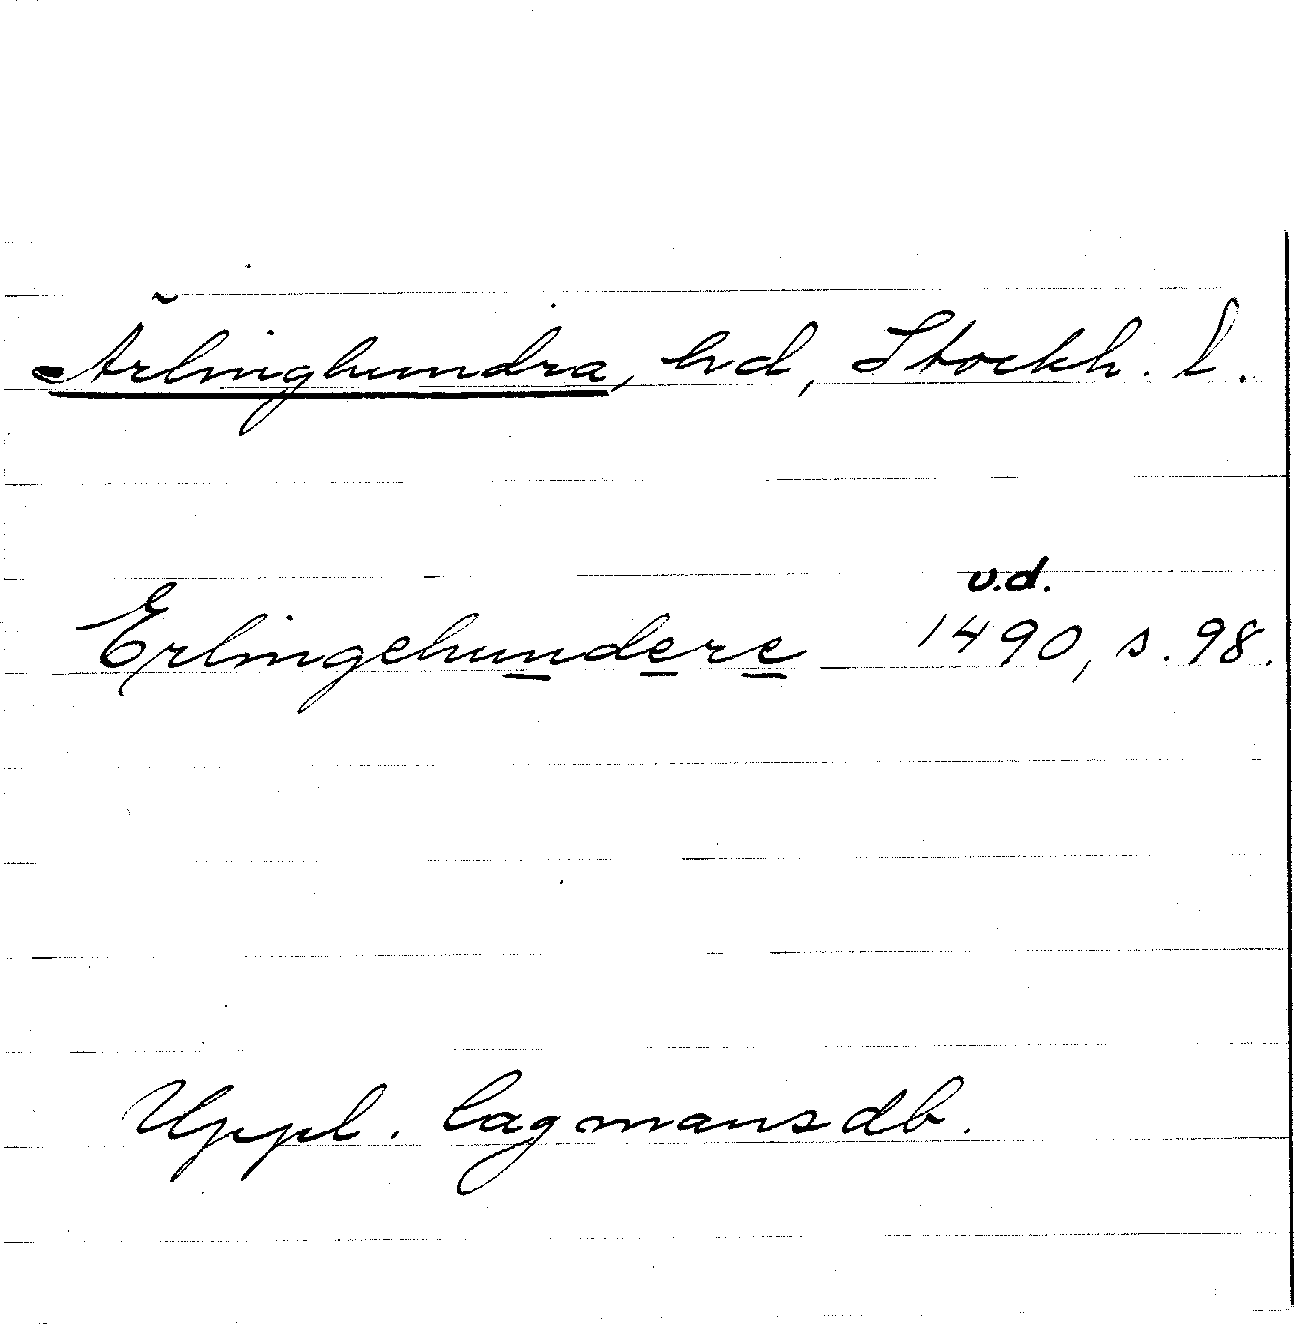 Ärlinghundra, hd, Stockh. l.
u.d.
Erlingehundere 1490, s. 98.
Uppl. lagmansdb.